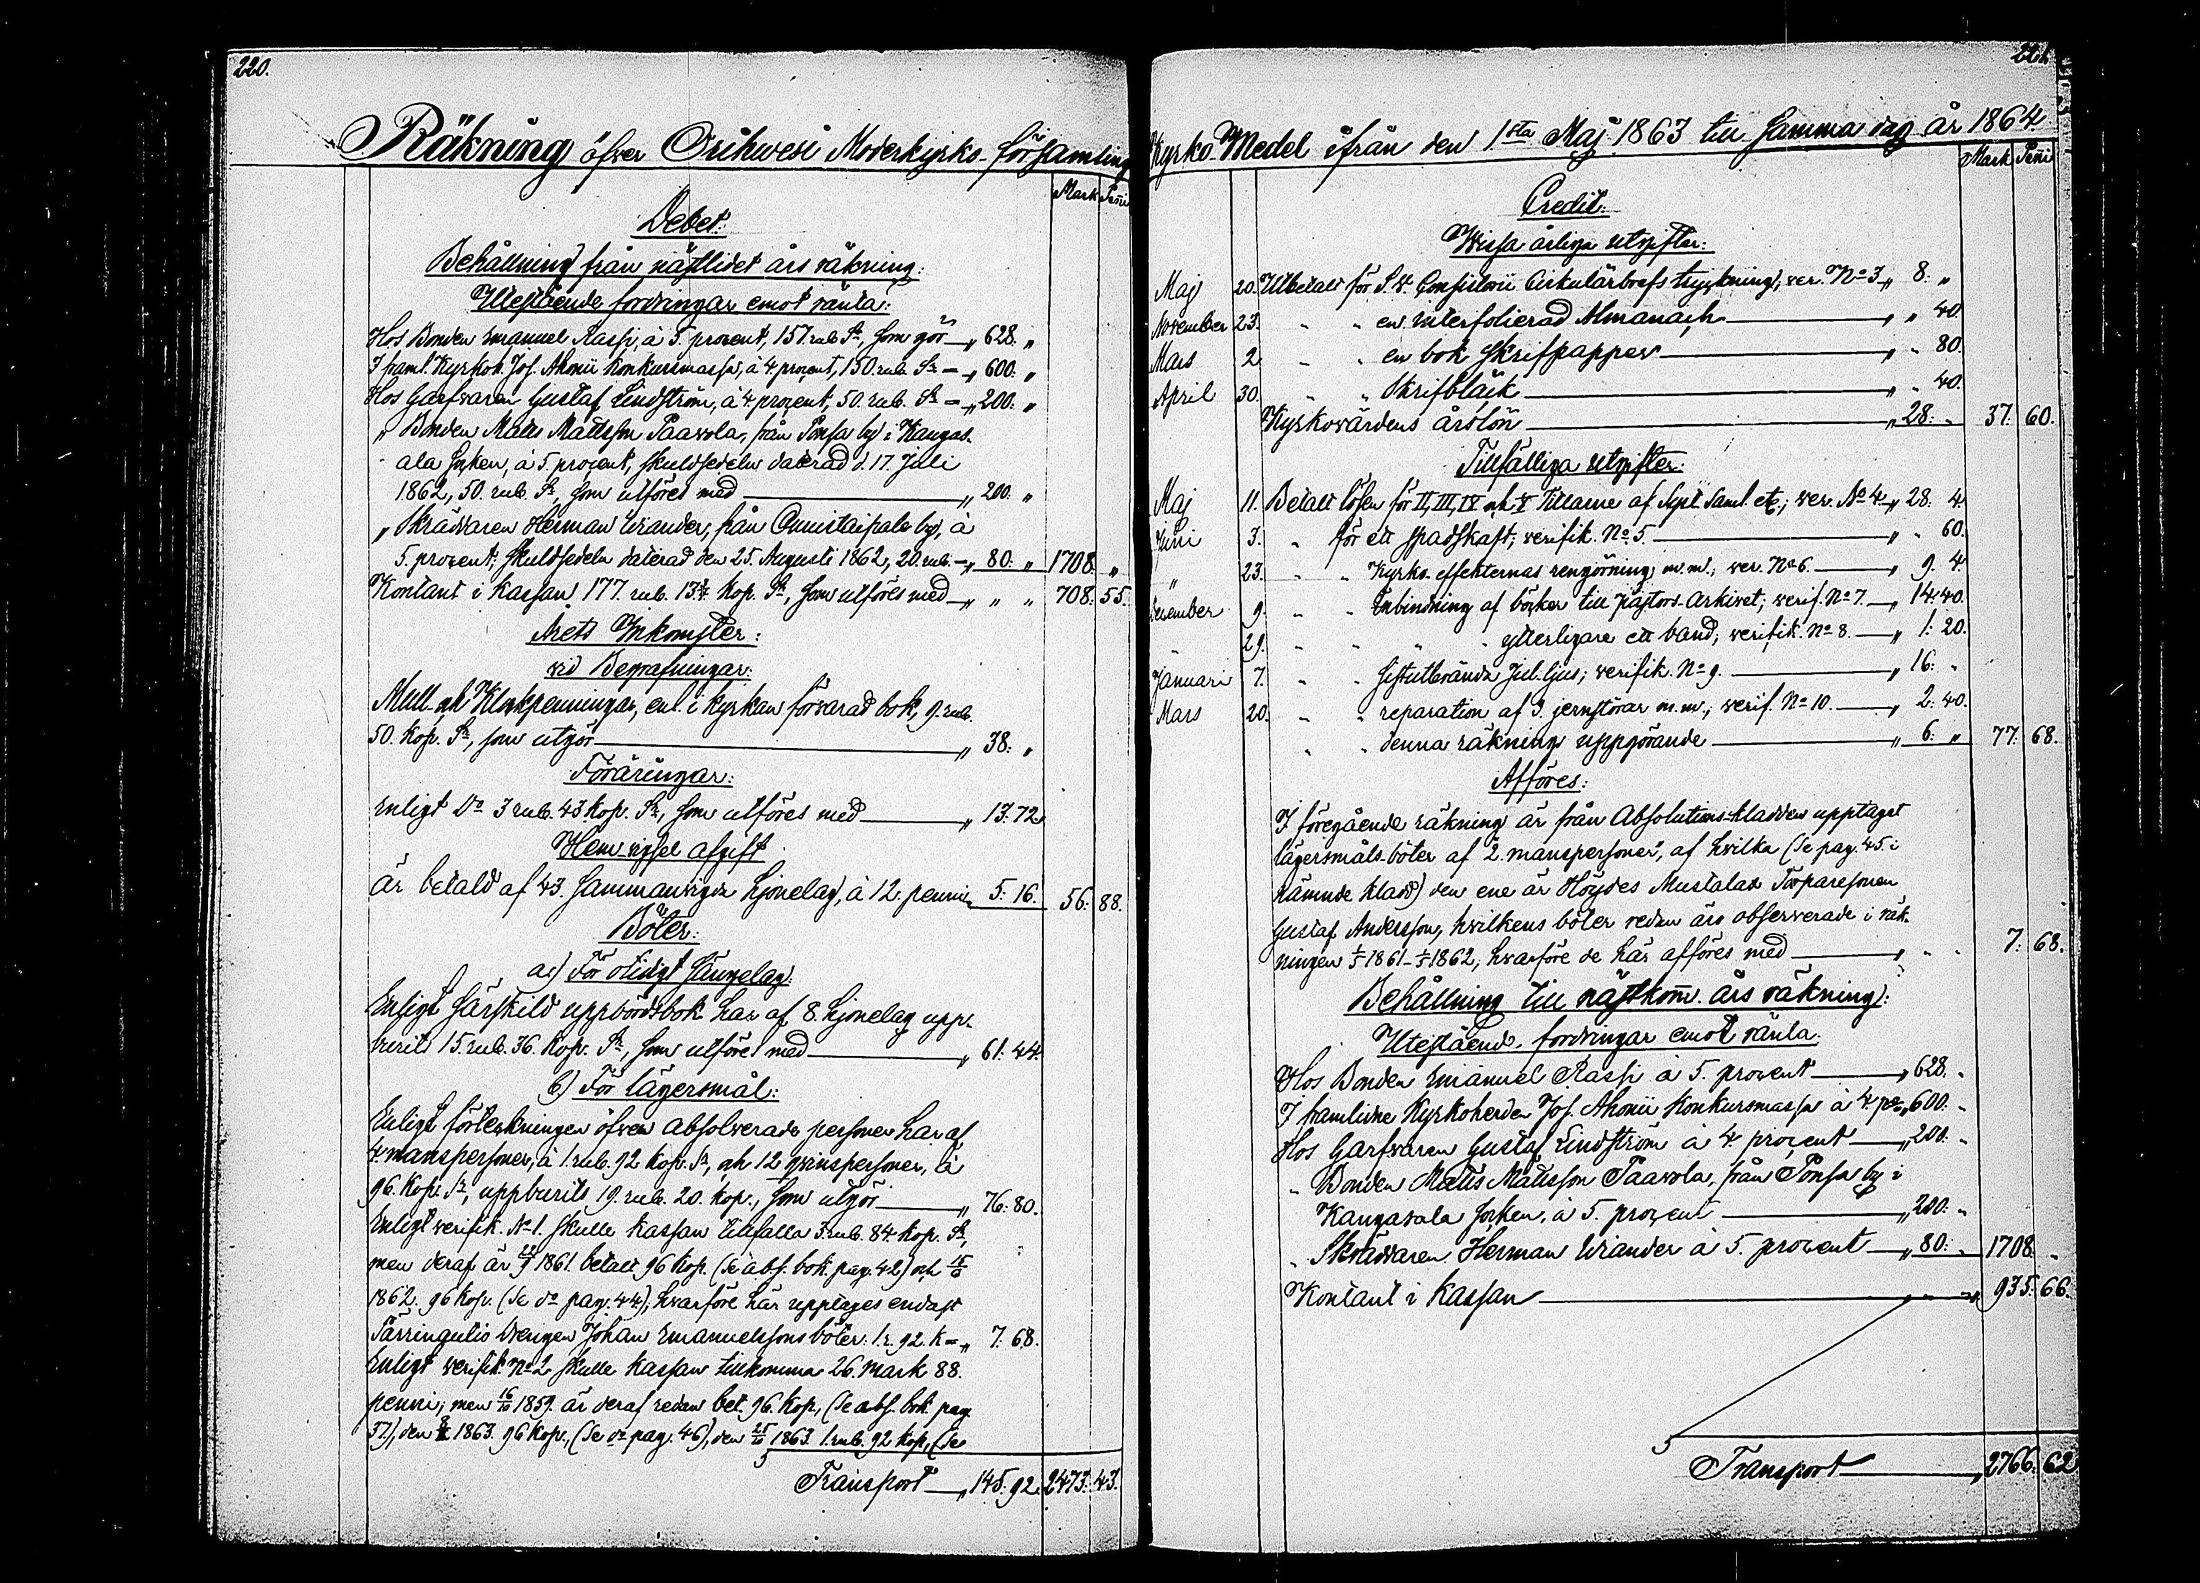 220.
Räkning öfver Orihwesi Moderkyrko-församlings
Mark Penni
Debet:
Behållning från nästlidet års räkning:
Utestående fordringar emot ränta:
Hos Bonden Emanuel Rassi, à 5. procent, 157 rub. Sr, som gör „ 628. „
I framl. Kyrkoh. Jos. Ahonii Konkursmassa, à 4 procent, 150. rub. Sr „ 600. „
Hos Garfvaren Gustaf Lindström, à 4. procent, 50. rub. Sr „ 200: „
„ Bonden Matts Mattsson Paavola, från Ponsa by i Kangas-
ala socken, à 5. procent, skuldsedeln daterad d. 17. Juli
1862, 50. rub. Sr, som utföres med „ 200. „
„ Skräddaren Herman Wrander, från Onnistaipale by, à
5. procent; skuldsedeln daterad den 25. Augusti 1862, 20. rub. „ 80: „ 1708. „
Kontant i Kassan 177. rub. 13¾ Kop. Sr, som utföres med „ „ „ 708. 55.
Årets Inkomster:
vid Begrafningar:
Mull- och Klockpenningar, enl. i Kyrkan förvarad bok, 9. rub.
50. Kop. Sr, som utgör „ 38: „
Föräringar:
Enligt Do 3 rub. 43. Kop. Sr, som utföres med „ 13: 72.
Hemvigsel afgift
är betald af 43. sammanvigda hjonelag, à 12. penni 5: 16. 56: 88.
Böter:
a.) För otidigt sängelag:
Enligt särskild uppbördsbok har af 8. hjonelag upp-
burits 15. rub. 36. Kop. Sr, som utföres med „ 61: 44.
b.) För lägersmål:
Enligt förteckningen öfver absolverade personer har af
4. manspersoner, à 1. rub. 92 Kop. Sr, och 12 qvinspersoner, à
96. Kop. Sr, uppburits 19. rub. 20. kop., som utgör „ 76: 80.
Enligt verifik. No 1. skulle kassan tillfalla 3. rub. 84 kop. Sr,
men deraf är 1861. betalt 96 Kop. (se abs. bok. pag. 42) och
1862. 96 Kop. (se do pag. 44), hvarföre här upptages endast
Särringutio drengen Johan Emanuelssons böter: 1. r. 92. K „ 7: 68.
Enligt verifik. No 2. skulle kassan tillkomma 26. mark 88.
penni; men 16/10 1859. är deraf redan bet. 96. Kop., (se abs. bok. pag.
37), den 1863. 96 Kop., (se do pag. 46), den 1863. 1. rub. 92 Kop., (se
Transport „ 145: 92. 2473. 43.
221.
Kyrko-Medel ifrån den 1sta Maj 1863 till samma dag år 1864.
Mark Penni
Credit:
Wissa årliga utgifter:
Maj 20. Utbetalt för S. V. Consistorii Cirkulärbrefs tryckning, ver. No 3 „ 8: „
November 23. „ „ en interfolierad Almanach „ „ 40.
Mars 2 „ „ en bok skrifpapper „ „ 80.
April 30. „ „ Skrifbläck „ „ 40.
Kyrkovärdens årslön „ 28: „ 37: 60.
Tillfälliga utgifter:
Maj 11. Betalt lösen för II, III, IV och V Titlarne af Spl. Saml. etc.; ver. No 4 „ 28. 4.
Juni 3. „ för ett spadskaft; verifik. No 5. „ „ 60.
„ 23. „ „ Kyrko-effekternas rengörning m.m., ver. No 6. „ 9. 4.
December 9. „ „ Inbindning af böcker till Pastors-Arkivet; verif. No 7. „ 14: 40.
„ 29. „ „ „ ytterligare ett band; verifik. No 8. „ 1: 20.
Januari 7. „ „ sistutbrända Jul-ljus; verifik. No 9. „ 16: „
Mars 20. „ „ reparation af 3. jernstörar m.m.; verif. No 10. „ 2: 40.
„ „ denna räknings uppgörande „ 6: „ 77: 68.
Afföres:
I föregående räkning är från Absolutions-kladden upptaget
lägersmåls-böter af 2. manspersoner, af hvilka (se pag. 45. i
nämnde kladd) den ene är Höydes Mustalax Torparesonen
Gustaf Andersson, hvilkens böter redan äro observerade i räk-
ningen 1/5 1861–1/5 1862, hvarföre de här afföres med „ „ 7: 68.
Behållning till nästkom̄. års räkning:
Utestående fordringar emot ränta:
Hos Bonden Emanuel Rassi à 5. procent „ 628. „
I framlidne Kyrkoherden Jos. Ahonii Konkursmassa à 4. pc. „ 600. „
Hos Garfvaren Gustaf Lindström à 4. procent „ 200. „
„ Bonden Matts Mattsson Paavola, från Ponsa by i
Kangasala socken, à 5. procent „ 200. „
„ Skräddaren Herman Wrander à 5. procent „ 80: „ 1708. „
Kontant i Kassan „ 935: 66.
Transport „ 2766. 62